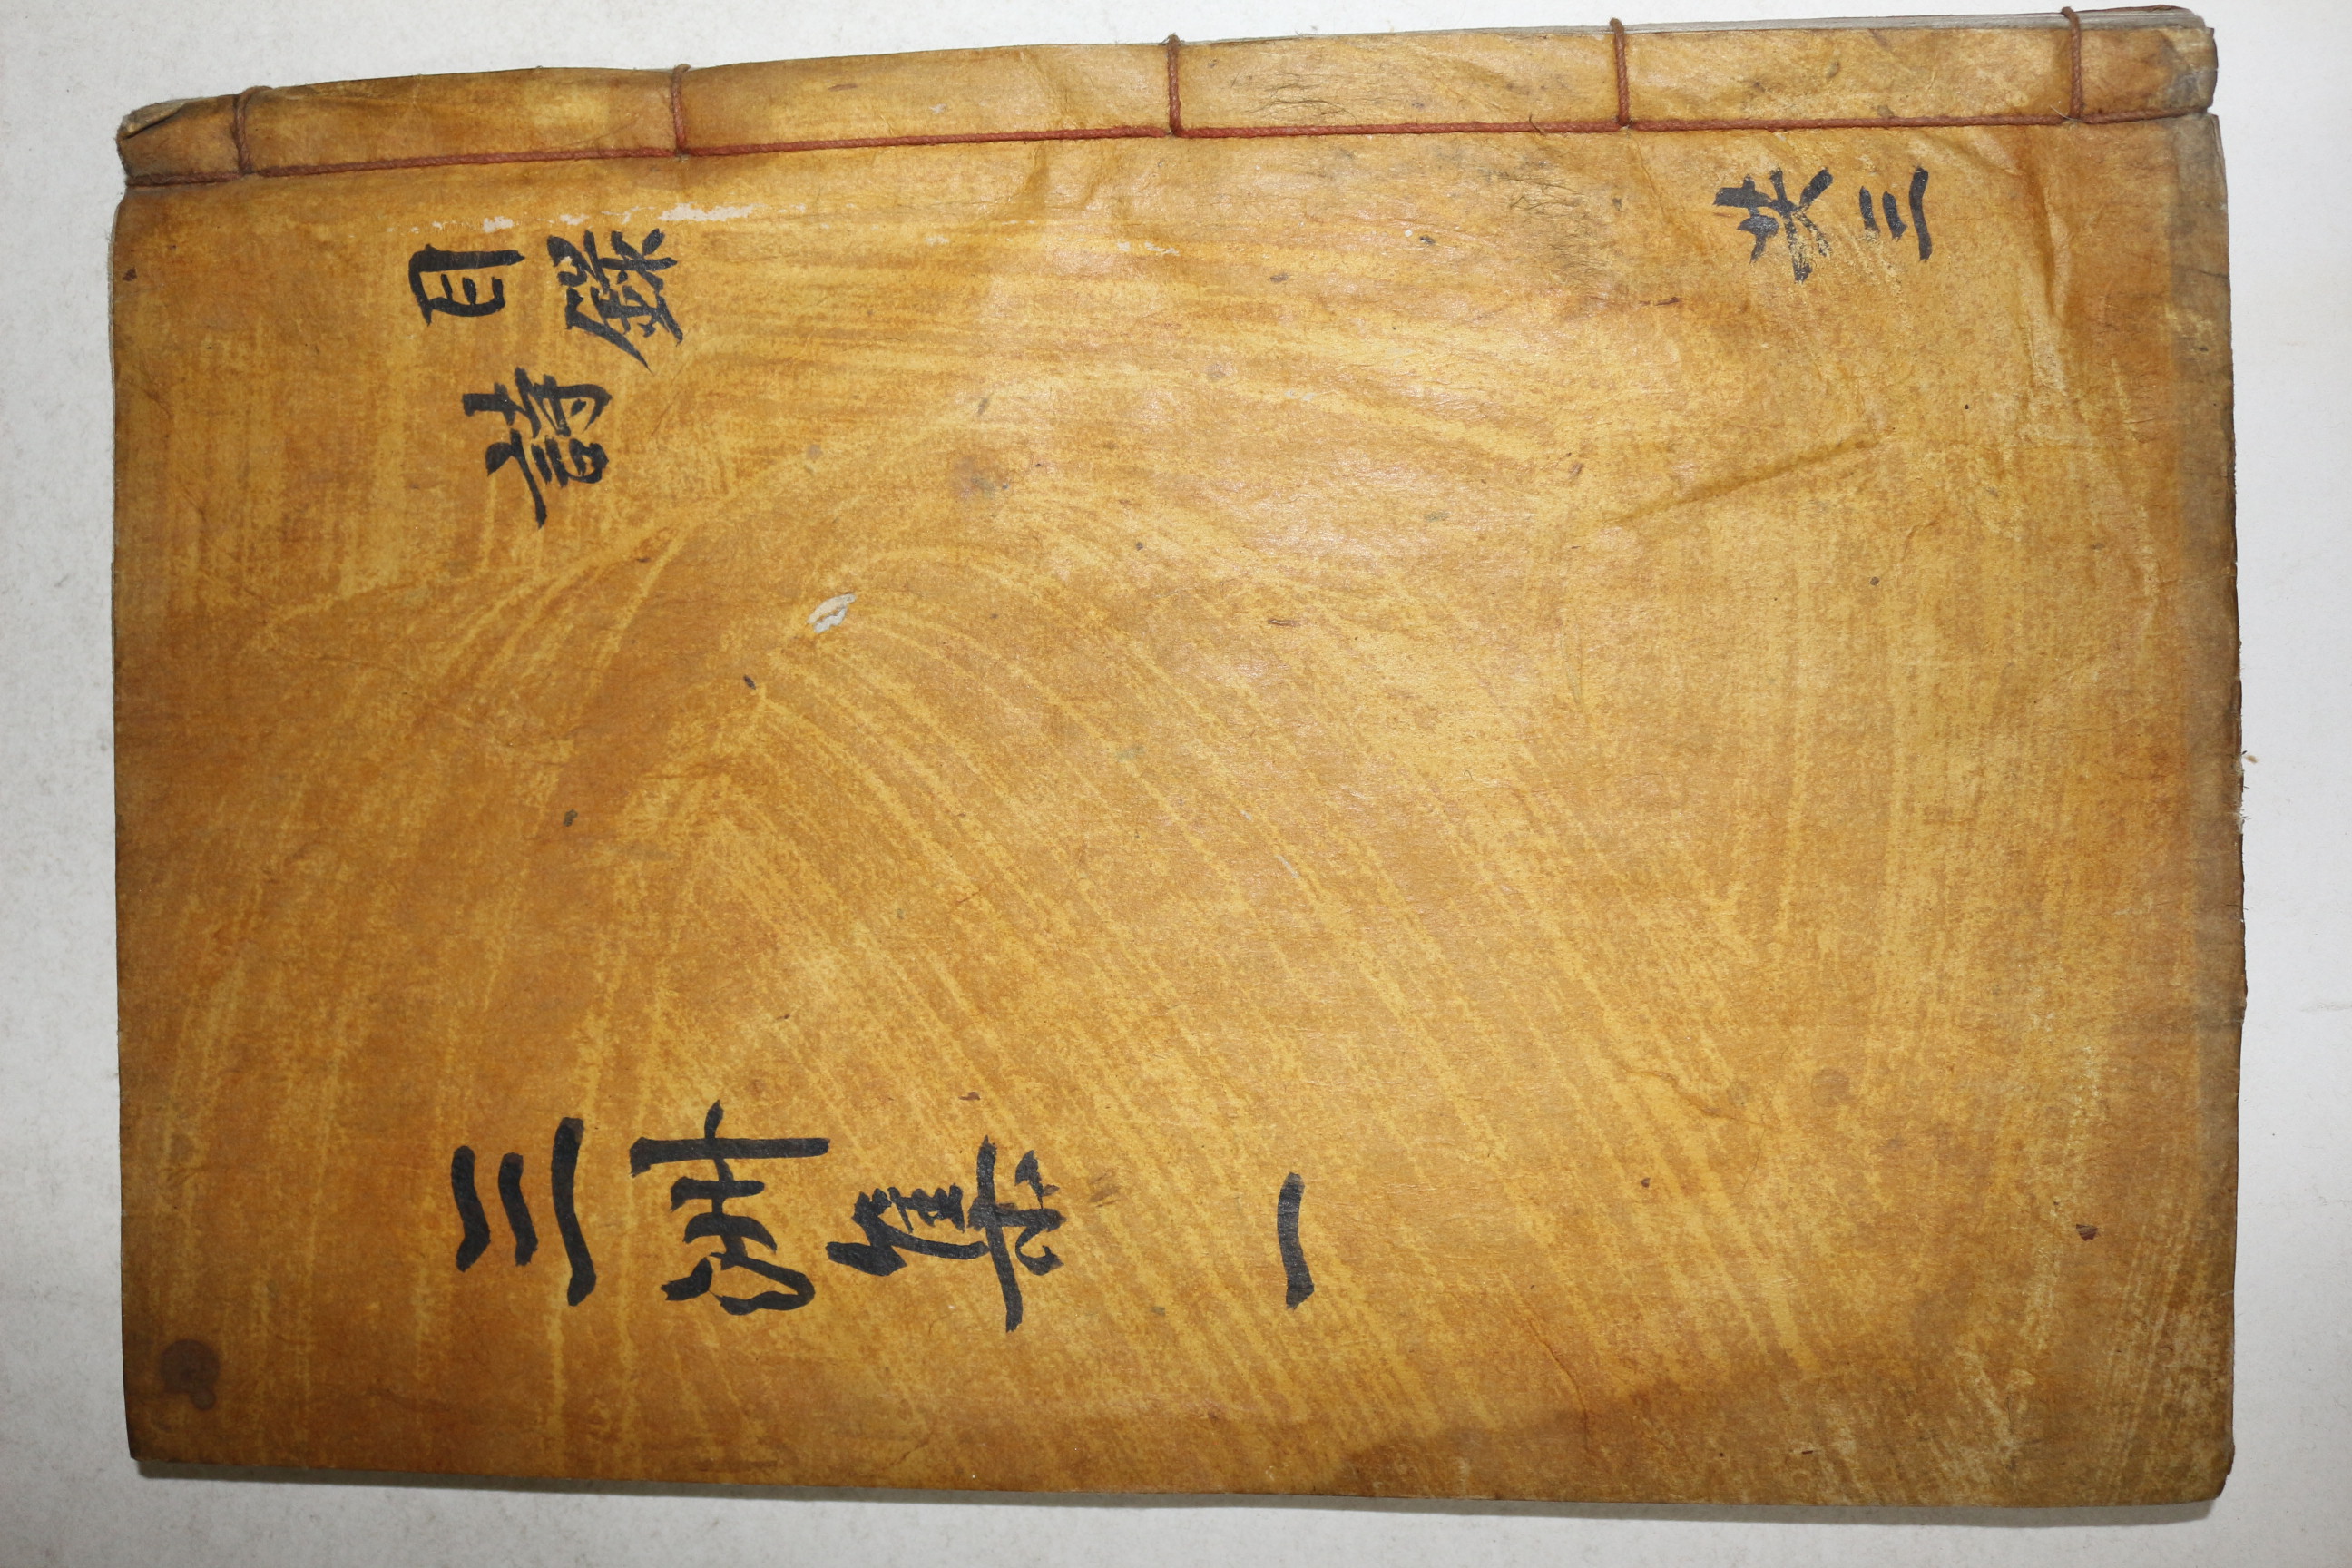 目錄
詩
共三
三洲集 一